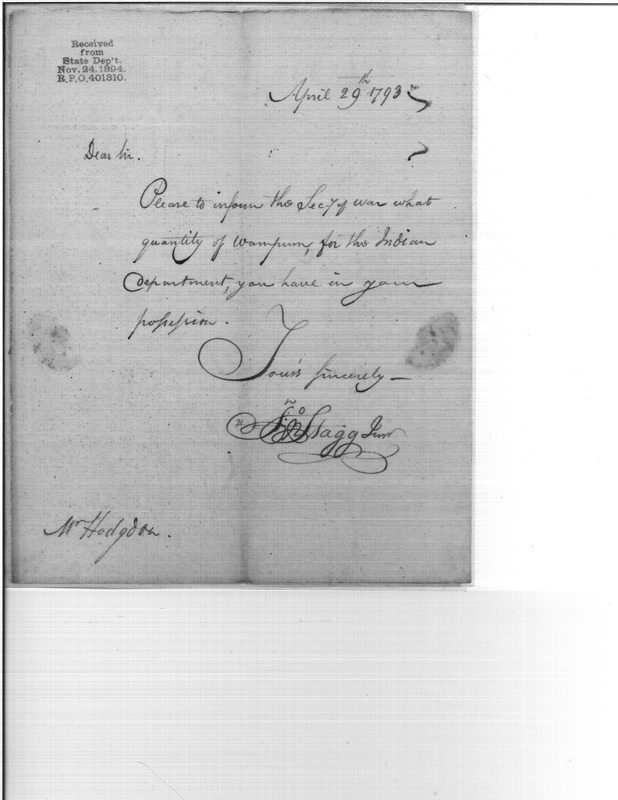 Received
from
State Dep't.
Nov. 24. 1894.
R.P.O. 401310.
April 29th 1793
Dear Sir.
Please to inform the Secy of war what
quantity of wampum, for the Indian
department, you have in your
possession.
Yours sincerely —
Jno Stagg Junr
Mr Hodgdon.